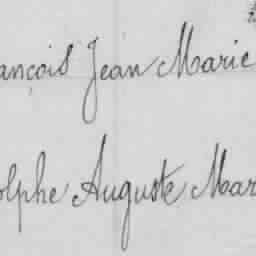 ançois Jean Marie
olphe Auguste Mar